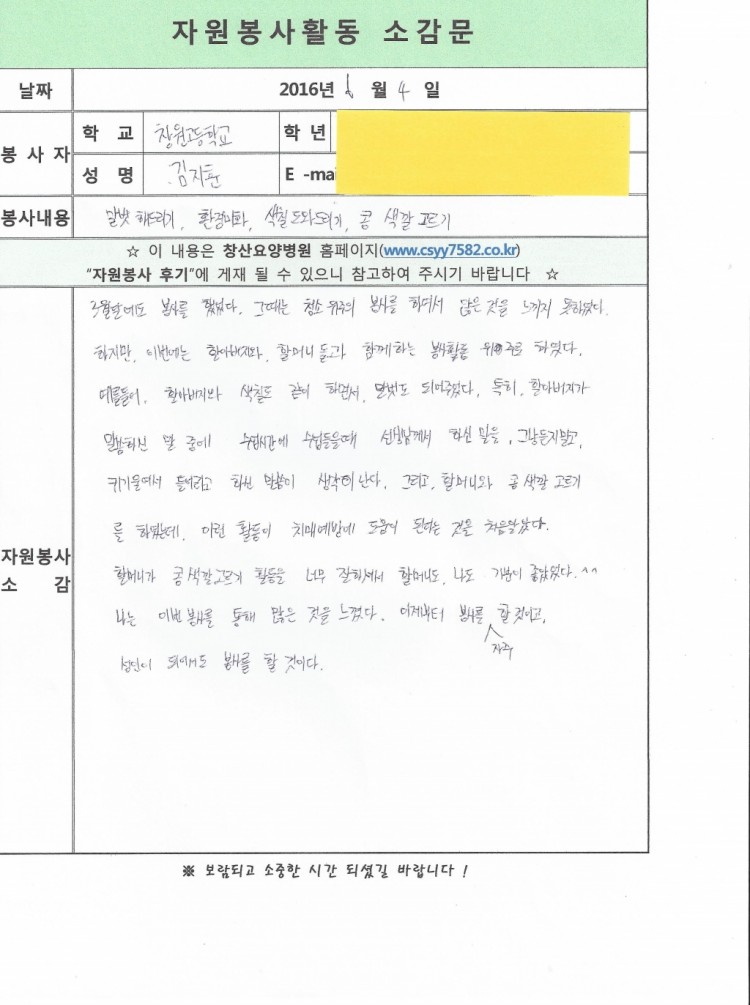 자원봉사활동 소감문
날짜 2016년 6 월 4 일
봉 사 자
학 교 창원고등학교 학 년
성 명 김지훈 E -mai
봉사내용 말벗 해드리기, 환경미화, 색칠 도와드리기, 콩 색깔 고르기
☆ 이 내용은 창산요양병원 홈페이지(www.csyy7582.co.kr)
"자원봉사 후기"에 게재 될 수 있으니 참고하여 주시기 바랍니다 ☆
자원봉사
소 감
3월달에도 봉사를 했었다. 그때는 청소 위주의 봉사를 하여서 많은 것을 느끼지 못하였다.
하지만, 이번에는 할아버지와, 할머니들과 함께하는 봉사활동 위주로 하였다.
예를들어, 할아버지와 색칠도 같이 하면서, 말벗도 되어주었다, 특히, 할아버지가
말씀하신 말 중에 수업시간에 수업들을때 선생님께서 하신 말을, 그냥듣지말고,
귀기울여서 들어라고 하신 말씀이 생각이 난다. 그리고, 할머니와 콩 색깔 고르기
를 하였는데, 이런 활동이 치매예방에 도움이 된다는 것을 처음알았다.
할머니가 콩색깔고르기 활동을 너무 잘하셔서 할머니도, 나도 기분이 좋았었다.^^
나는 이번 봉사를 통해 많은 것을 느꼈다. 이제부터 봉사를 자주 할 것이고,
성인이 되어서도 봉사를 할 것이다.
※ 보람되고 소중한 시간 되셨길 바랍니다 !